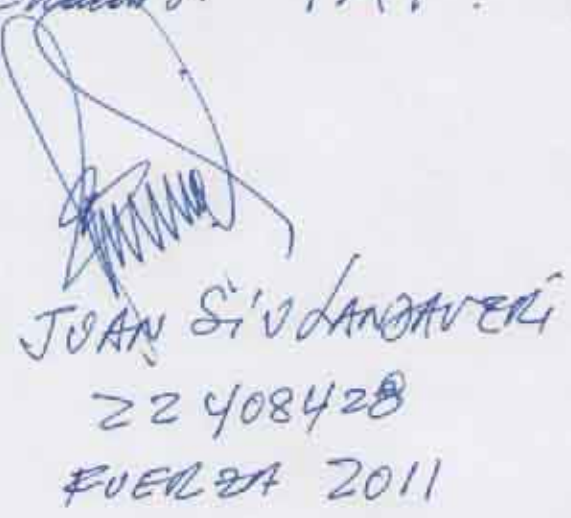 JUAN SIU LANZAVERI
22408428
FUERZA 2011